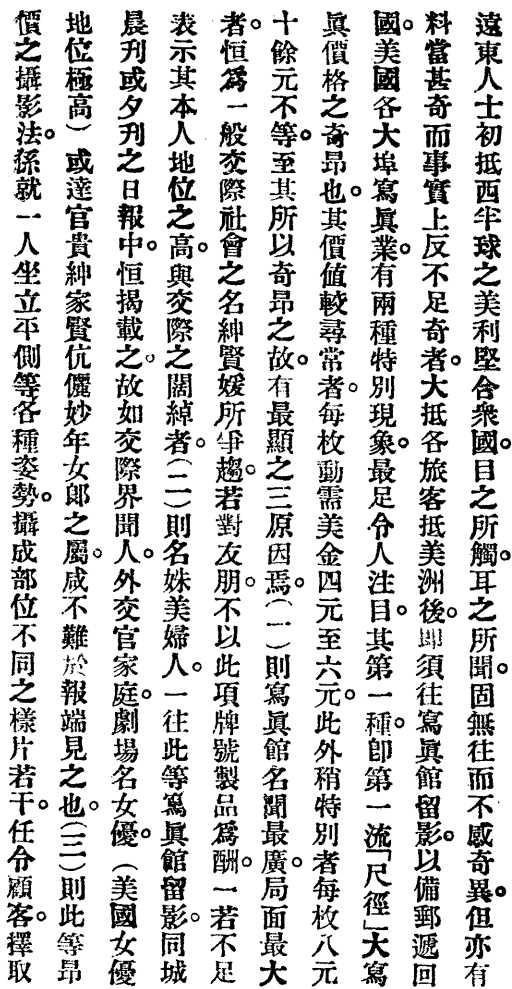 遠東人士初抵西半球之美利堅合衆國。目之所觸。耳之所聞。固無往而不感奇異。但亦有
料當甚奇而事實上反不足奇者。大抵各旅客抵美洲後。卽須往寫眞館留影。以備郵遞回
國。美國各大埠寫眞業。有兩種特別現象。最足令人注目。其第一種。卽第一流「尺徑」大寫
眞價格之奇昂也。其價値較尋常者。每枚動需美金四元至六元。此外稍特別者每枚八元
十餘元不等。至其所以奇昂之故。有最顯之三原因焉。(一)則寫眞館名聞最廣。局面最大
者。恒爲一般交際社會之名紳賢媛所爭趨。若對友朋。不以此項牌號製品爲酬。一若不足
表示其本人地位之高。與交際之闊綽者。(二)則名姝美婦人。一往此等寫眞館留影。同城
晨刋或夕刋之日報中。恒揭載之。故如交際界聞人。外交官家庭。劇場名女優。(美國女優
地位極高)或達官貴紳家賢伉儷妙年女郞之屬。咸不難於報端見之也。(三)則此等昂
價之攝影法。係就一人坐立平側等各種姿勢。攝成部位不同之樣片若干。任令顧客。擇取